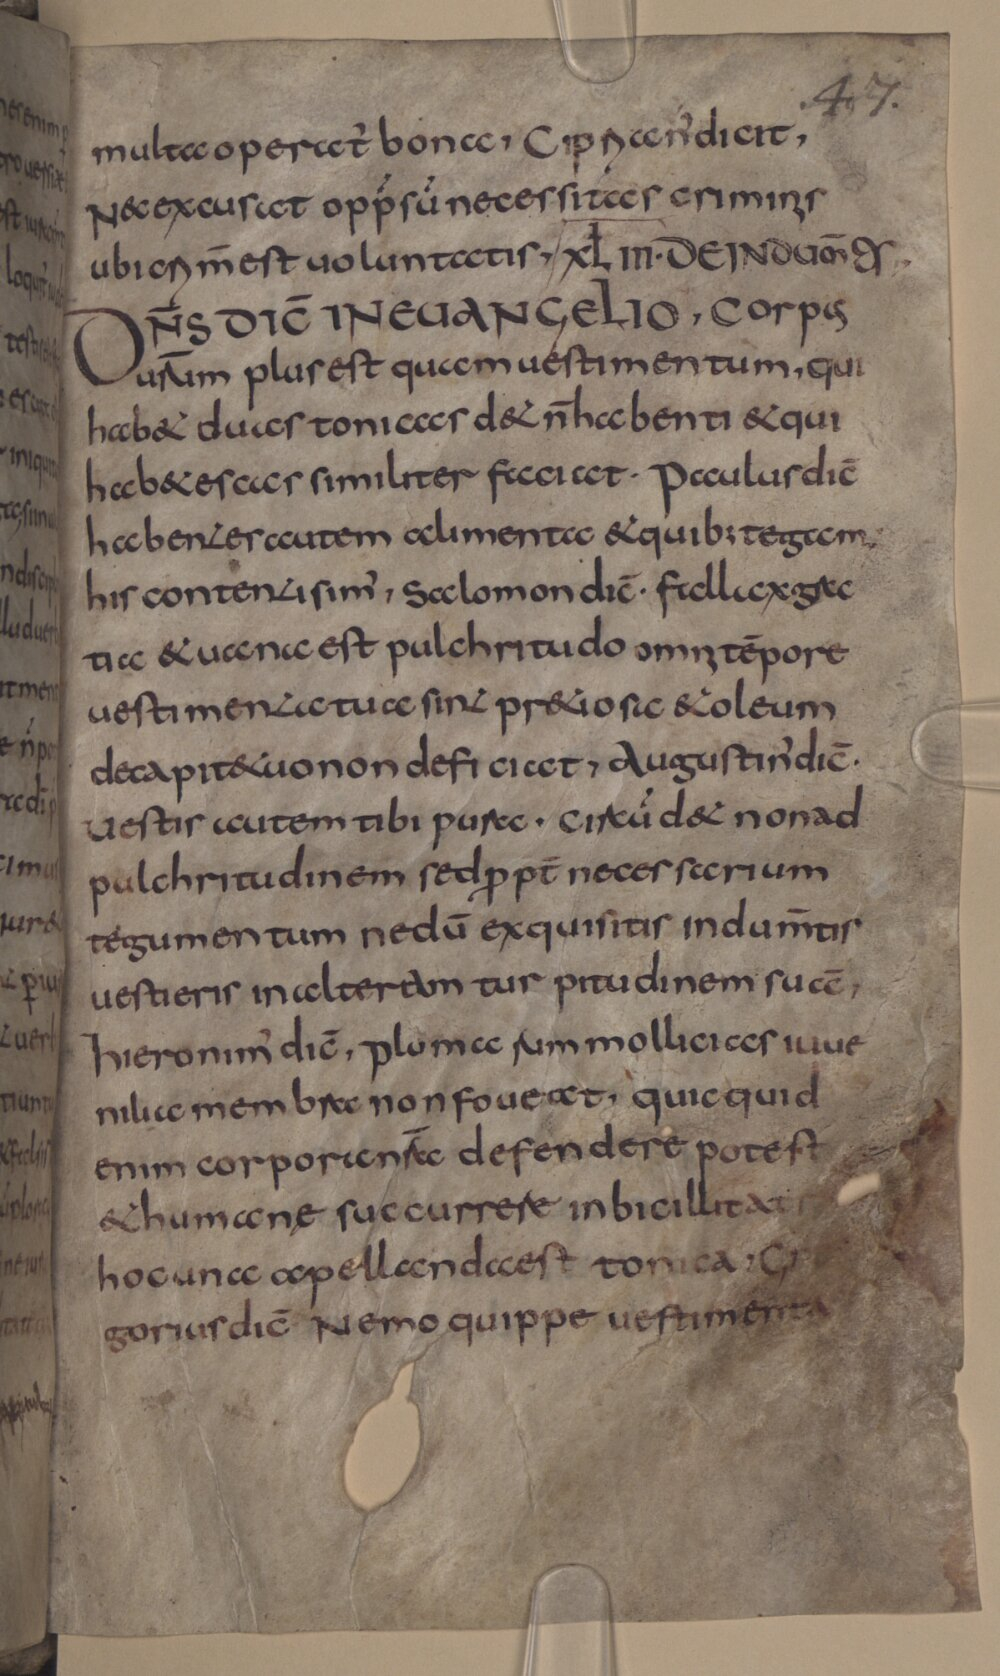 .47.
multa operat᷒ bona, Cipꝛian᷒ dicit,
Nec excusat opp̃sũ necessitas criminis
ubi crim̃ est uoluntatis, XLIII. DE INDUM̃TIS.
DN̄S DIC̄ IN EUANGELIO, Corpus
uestrum plus est quam uestimentum, qui
hab& duas tonicas d& n̄ habenti & qui
hab& escas similiter faciat. Paulus dic̄
habentes autem alimenta & quib; tegam᷒
his contenti sim᷒, Salomon dic̄. fallax gra
tia & uana est pulchritudo omni tēpore
uestimenta tua sint pr&iosa & oleum
de capit& uo non deficiat, Augustin᷒ dic̄.
Uestis autem tibi pura. cultũ d& non ad
pulchritudinem sed ꝓpt̄ necessarium
tegumentum nedū exquisitis indum̄tis
uestieris in alteram turpitudinem suā,
hieronim᷒ dic̄, pluma sum mollicias iuue
nilia membra non foueat, quicquid
enim corpora nr̄a defendere potest
& humane succurrere inbicillitati
hoc una apellanda est tonica, Gre
gorius dic̄ Nemo quippe uestimenta